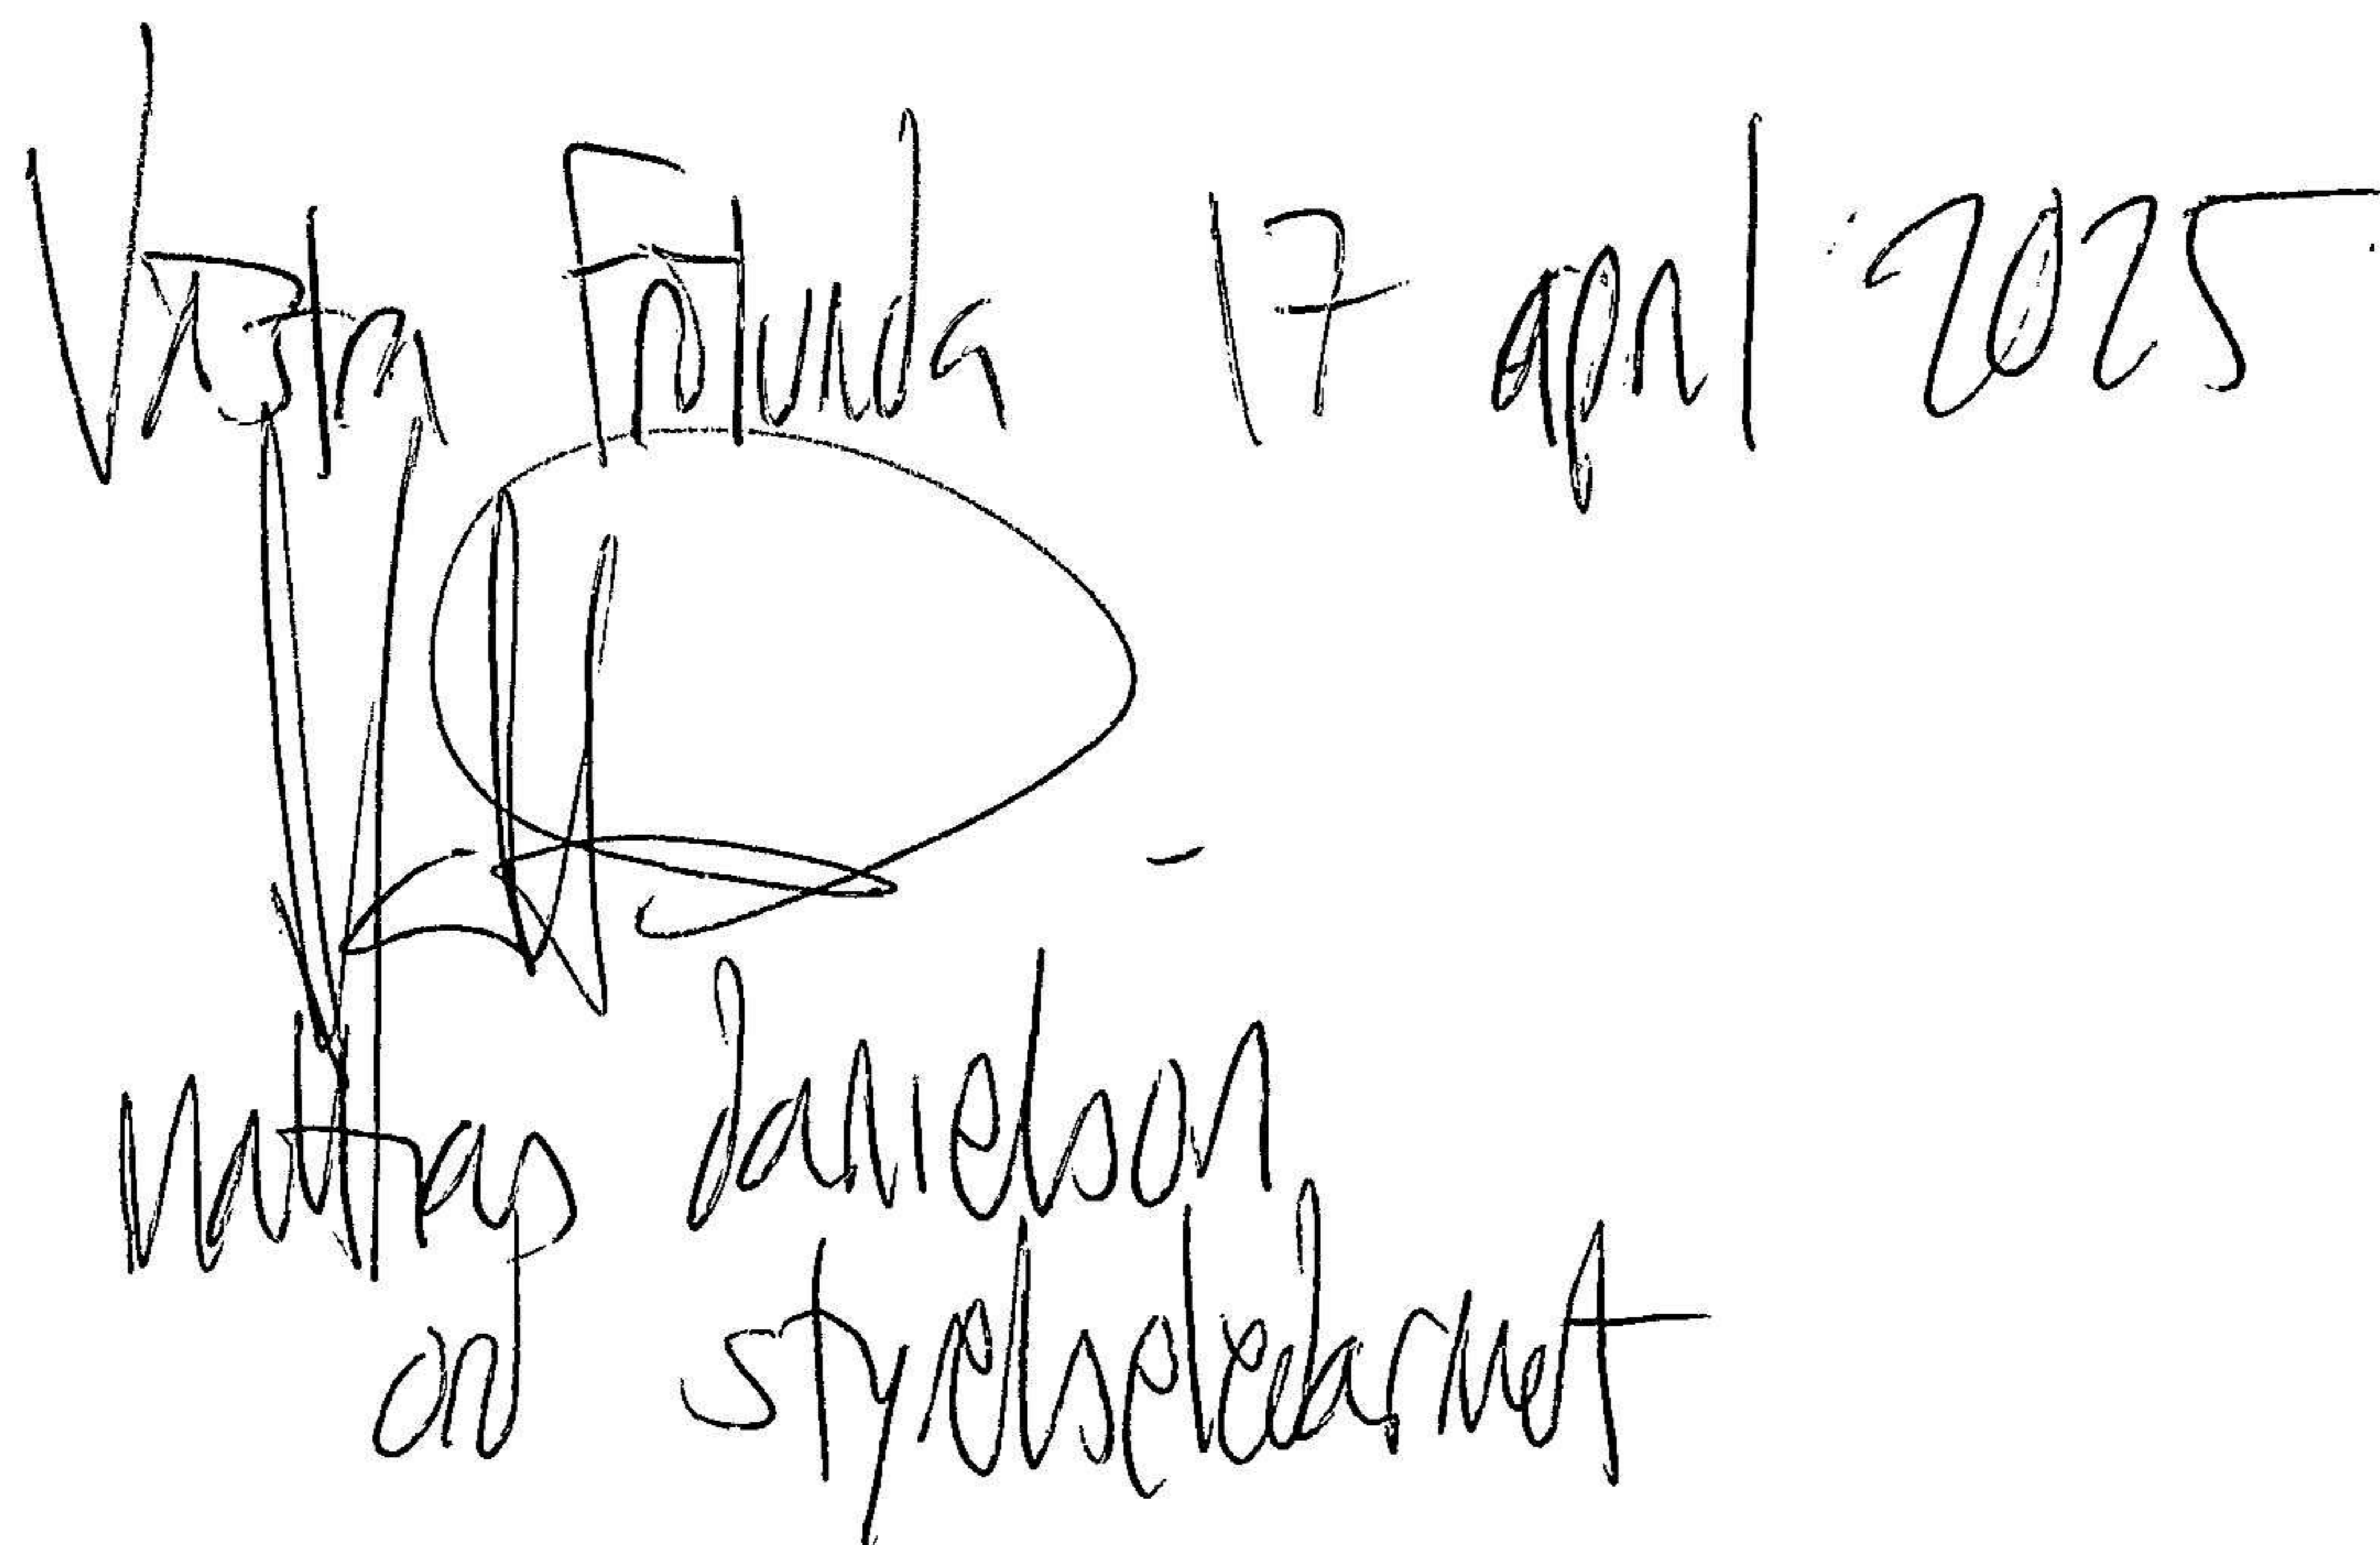 Västra Frölunda 17 april 2025
Mattias Danielson
ord styrelseledamot